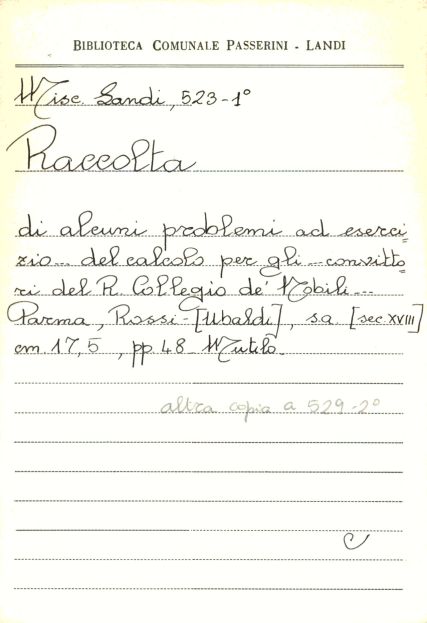 BIBLIOTECA COMUNALE PASSERINI - LANDI
Misc. Landi, 523-1°
Raccolta
di alcuni problemi ad eserci=
zio... del calcolo per gli ... convitto=
ri del R. Collegio de' Nobili...
Parma, Rossi-[Ubaldi], s.a. [sec. XVIII]
cm. 17,5, pp. 48 Mutilo.
altra copia a 529-2°
C